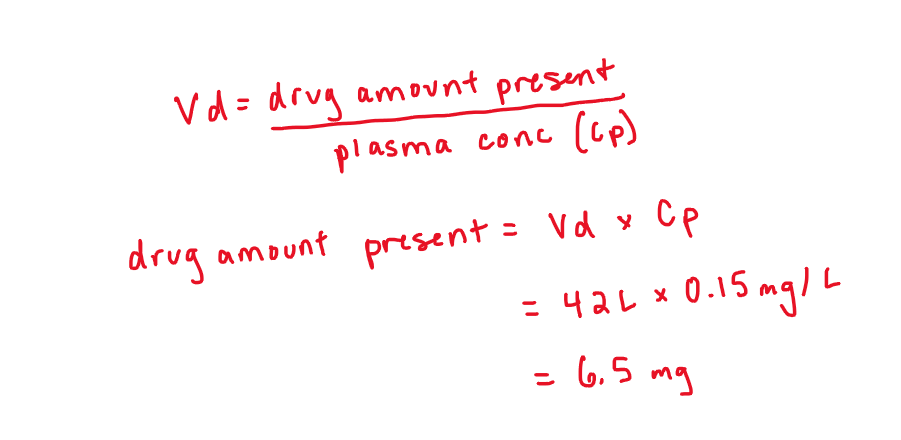 Vd = drug amount present
plasma conc (Cp)
drug amount present = Vd x Cp
= 42L x 0.15 mg/L
= 6.5 mg